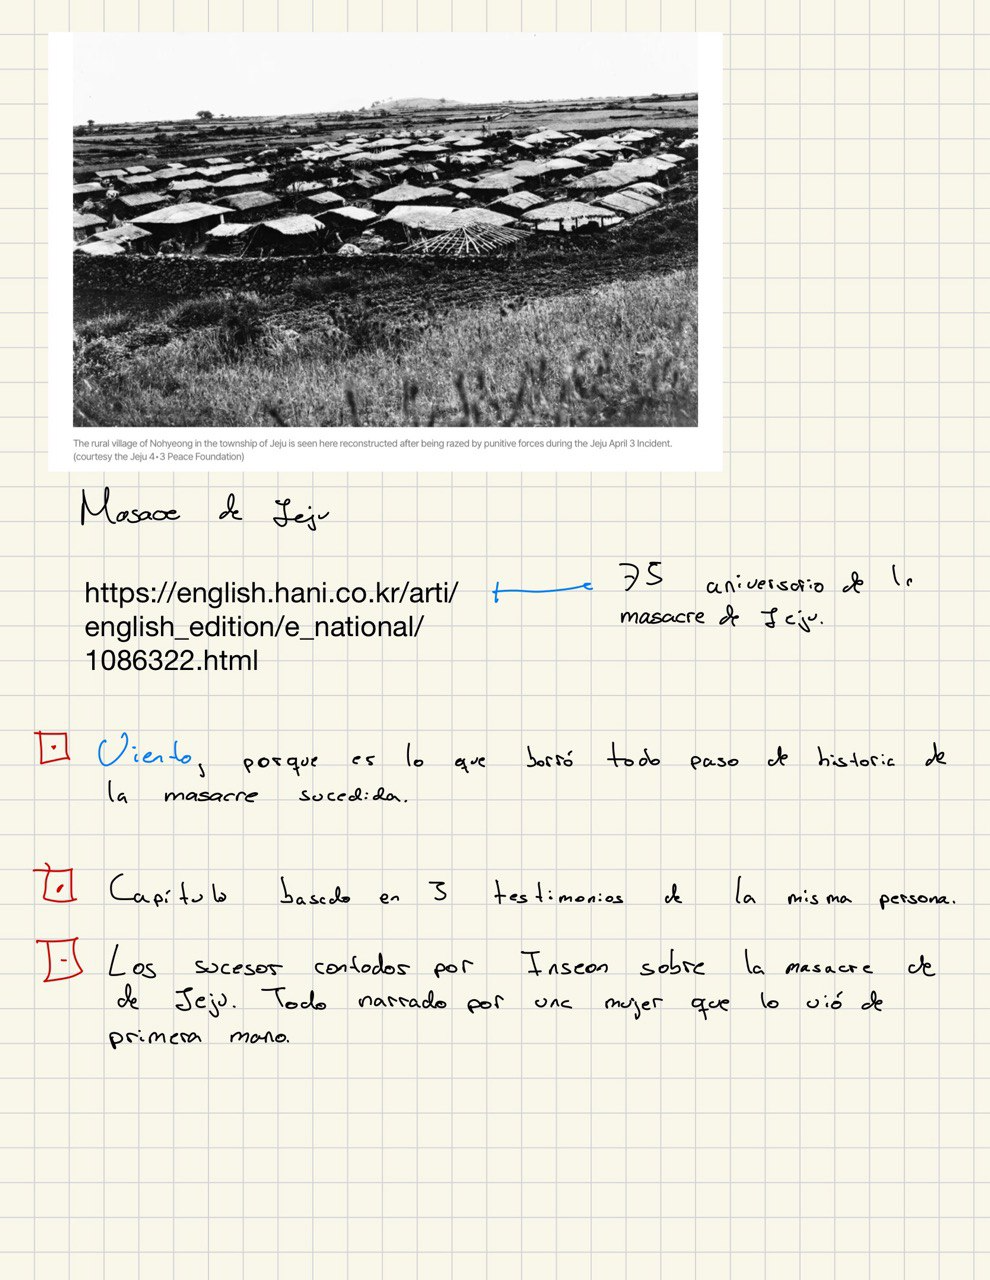 The rural village of Nohyeong in the township of Jeju is seen here reconstructed after being razed by punitive forces during the Jeju April 3 Incident.
(courtesy the Jeju 4·3 Peace Foundation)
Masacre de Jeju
https://english.hani.co.kr/arti/
english_edition/e_national/
1086322.html
75 aniversario de la
masacre de Jeju.
Viento, porque es lo que borró todo paso de historia de
la masacre sucedida.
Capítulo basado en 3 testimonios de la misma persona.
Los sucesos contados por Inseon sobre la masacre de
de Jeju. Todo narrado por una mujer que lo vió de
primera mano.